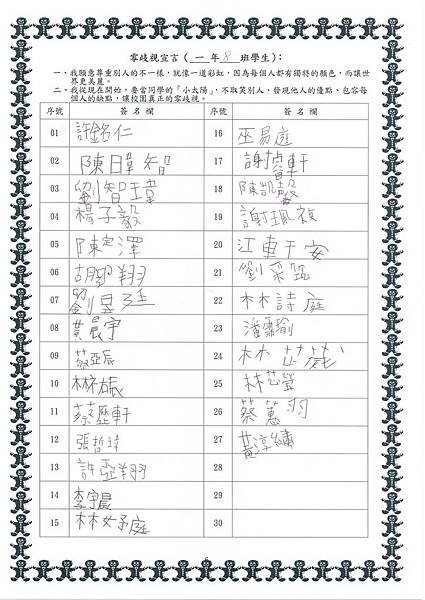 零歧視宣言（一年8班學生）：
一、我願意尊重別人的不一樣，就像一道彩虹，因為每個人都有獨特的顏色，而讓世
界更美麗。
二、我從現在開始，要當同學的「小太陽」，不取笑別人、發現他人的優點、包容每
個人的缺點，讓校園真正的零歧視。
序號 簽名欄 序號 簽名欄
01 許銘仁 16 巫易庭
02 陳暐智 17 謝貿軒
03 劉智瑋 18 陳凱
04 楊子毅 19 謝珮禎
05 陳定澤 20 江車干安
06 胡 翔 21 劉采甄
07 劉昱廷 22 林詩庭
08 黃晨宇 23 潘霈瑜
09 蔡亞辰 24 林芷
10 林祐振 25 林芯瑩
11 蔡歷軒 26 蔡蕙羽
12 張哲瑋 27 黃淳繡
13 許亞翔 28
14 李宇晨 29
15 林妤庭 30